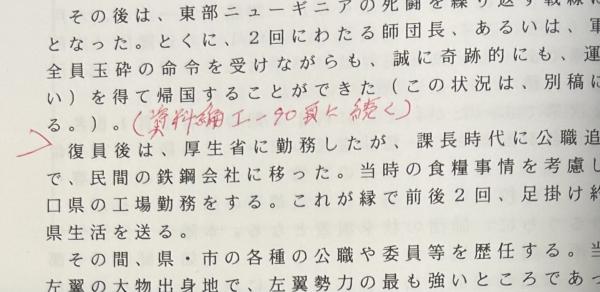 その後は、東部ニューギニアの死闘を繰り返す戦線に
となった。とくに、２回にわたる師団長、あるいは、軍
全員玉砕の命令を受けながらも、誠に奇跡的にも、運
い）を得て帰国することができた（この状況は、別稿に
る。）。（資料編工－90頁に続く）
復員後は、厚生省に勤務したが、課長時代に公職追
で、民間の鉄鋼会社に移った。当時の食糧事情を考慮し
口県の工場勤務をする。これが縁で前後２回、足掛け約
県生活を送る。
その間、県・市の各種の公職や委員等を歴任する。当
左翼の大物出身地で、左翼勢力の最も強いところであっ